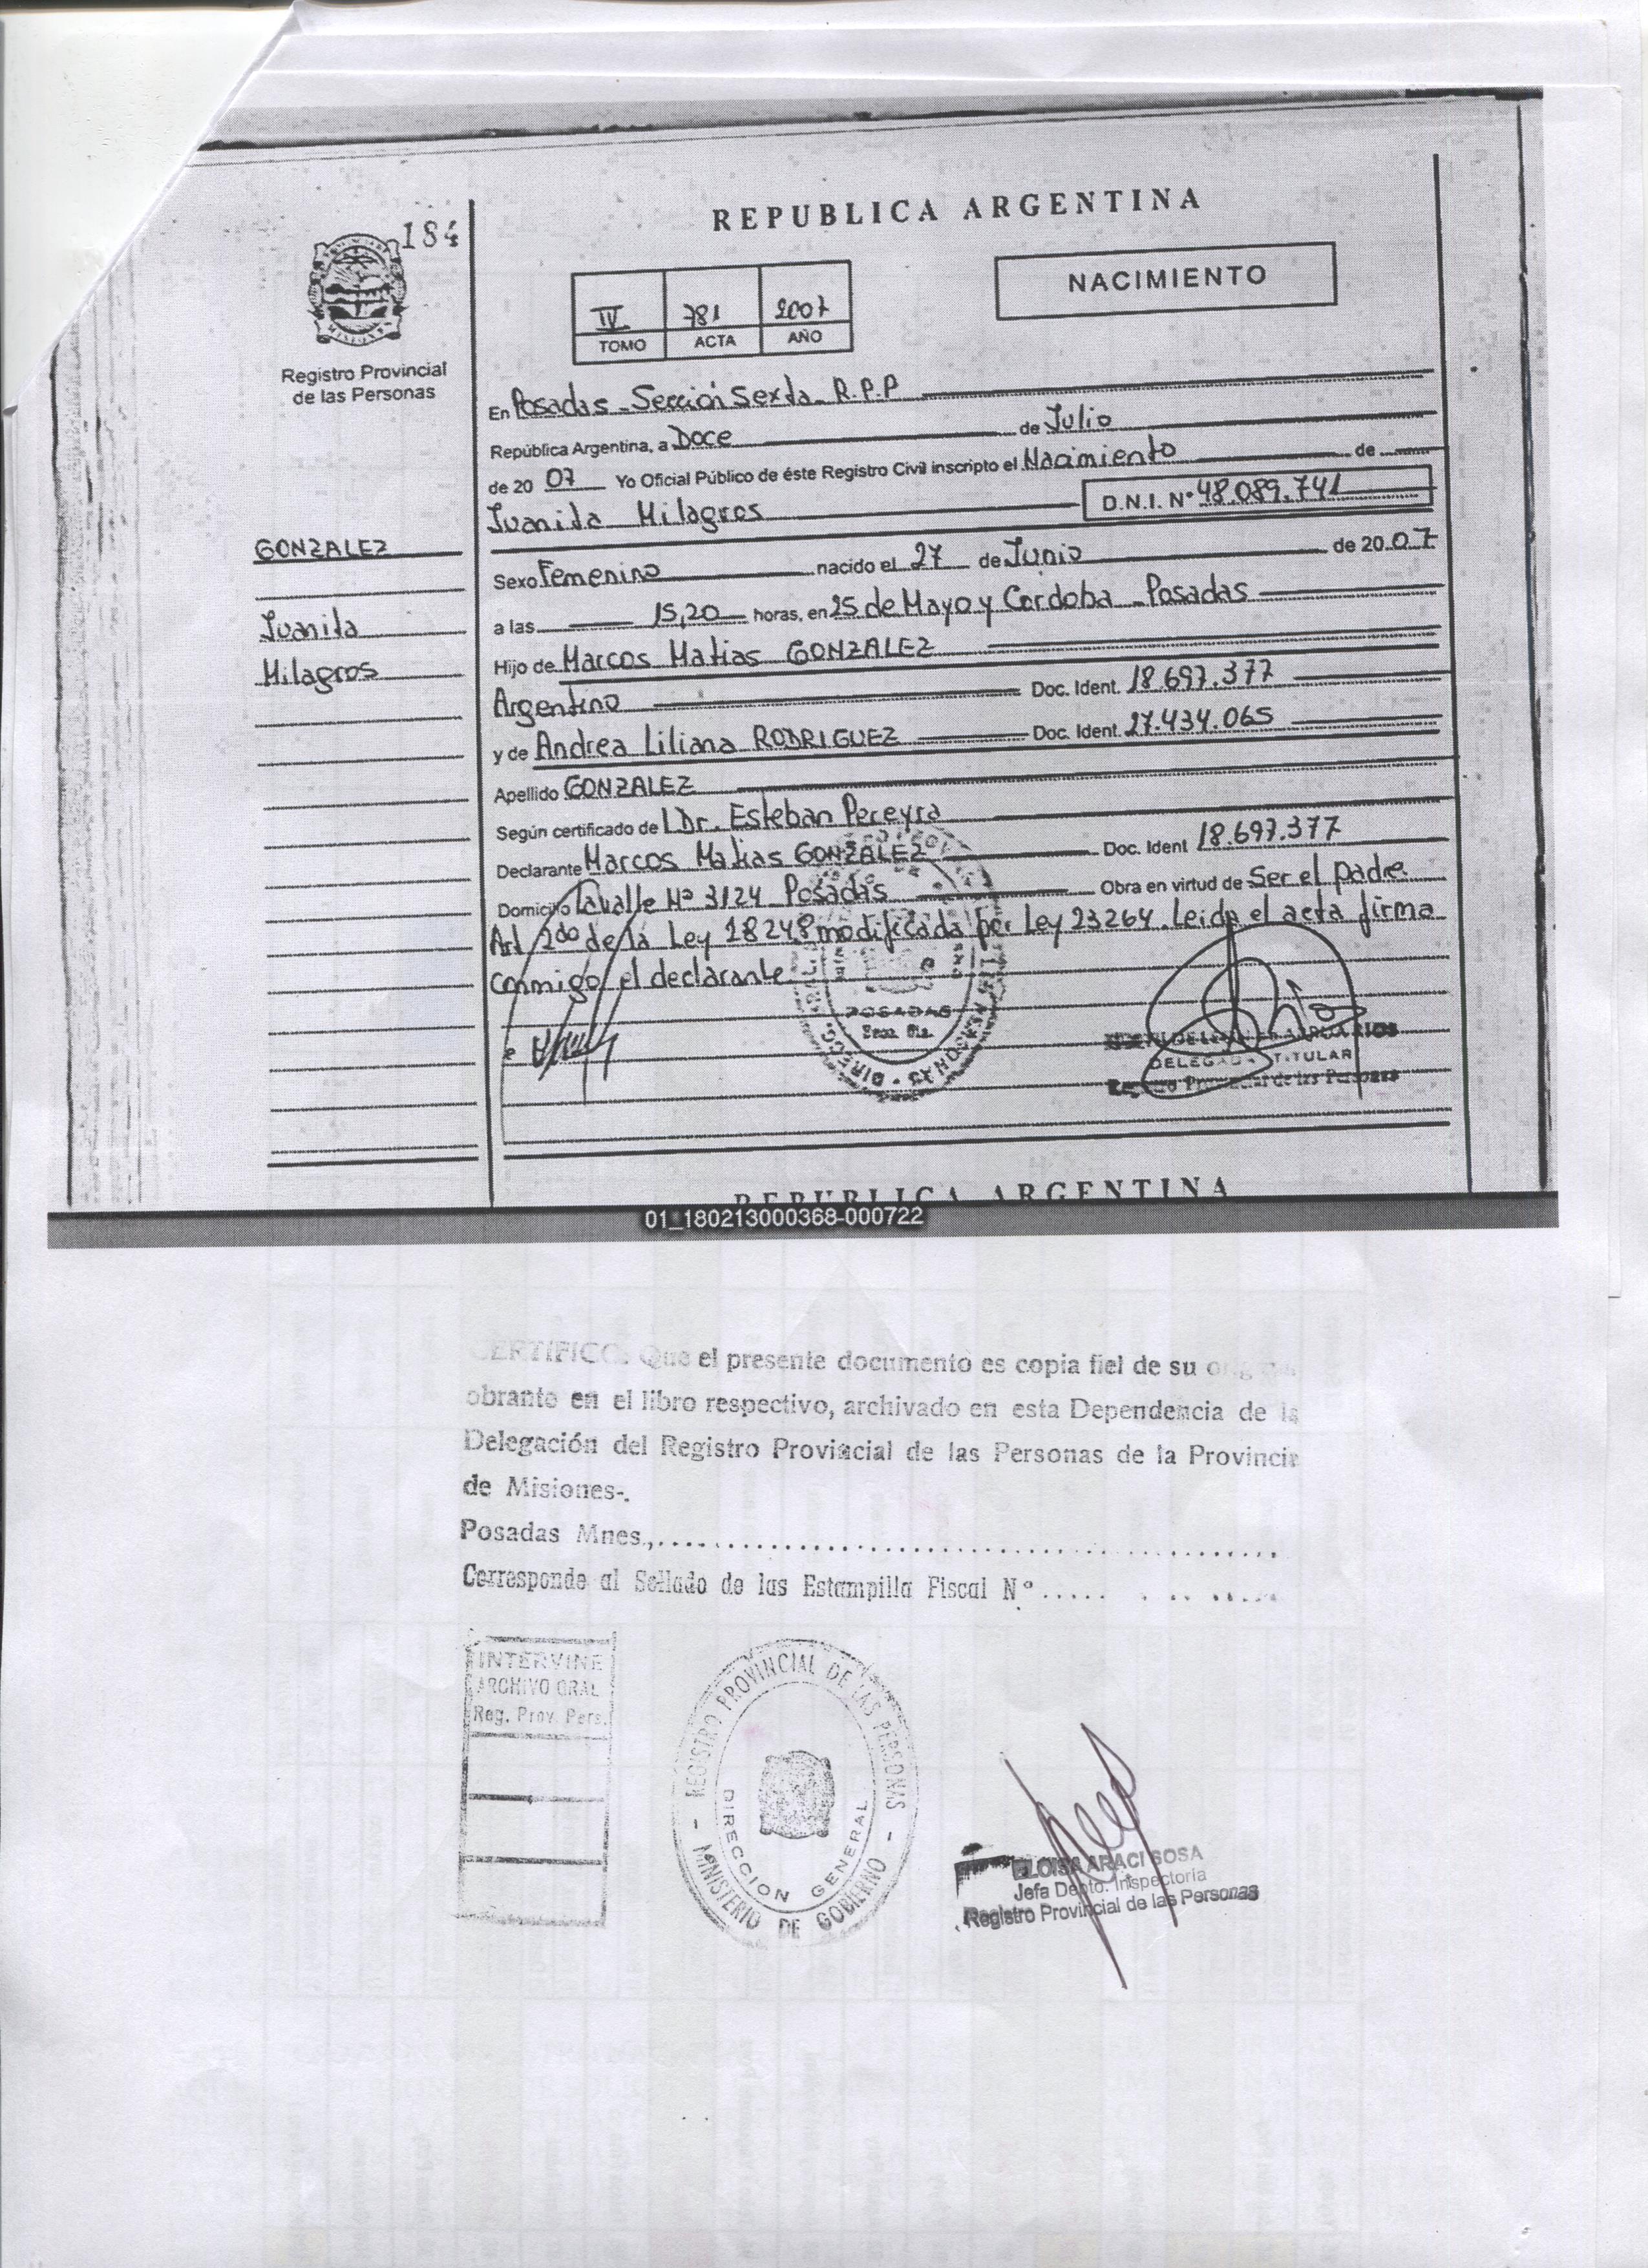 184
REPUBLICA ARGENTINA
NACIMIENTO
IV 781 2007
TOMO ACTA AÑO
Registro Provincial
de las Personas
En Posadas - Sección Sexta - R.P.P
República Argentina, a Doce de Julio
de 20 07 Yo Oficial Público de éste Registro Civil inscripto el Nacimiento de
Juanita Milagros D.N.I. Nº 48.089.741
GONZALEZ
Juanita
Milagros
Sexo Femenino nacido el 27 de Junio de 20 07
a las 15,20 horas, en 25 de Mayo y Cordoba - Posadas
Hijo de Marcos Matias GONZALEZ
Argentino Doc. Ident. 18.697.377
y de Andrea Liliana RODRIGUEZ Doc. Ident. 27.434.065
Apellido GONZALEZ
Según certificado de l Dr. Esteban Pereyra
Declarante Marcos Matias GONZALEZ Doc. Ident 18.697.377
Domicilio Lavalle Nº 3124 Posadas Obra en virtud de Ser el padre.
Art 2do de la Ley 18248 modificada por Ley 23264. Leida el acta firma
conmigo el declarante.
POSADAS
Secc. 6ta.
DELEGADA TITULAR
Registro Provincial de las Personas
REPUBLICA ARGENTINA
01_180213000368-000722
CERTIFICO: Que el presente documento es copia fiel de su original
obrante en el libro respectivo, archivado en esta Dependencia de la
Delegación del Registro Provincial de las Personas de la Provincia
de Misiones-.
Posadas Mnes.,
Corresponde al Sellado de las Estampilla Fiscal Nº
INTERVINE
ARCHIVO GRAL
Reg. Prov. Pers.
REGISTRO PROVINCIAL DE LAS PERSONAS
DIRECCION GENERAL
MINISTERIO DE GOBIERNO
ELOISA ARACI SOSA
Jefa Depto. Inspectoria
Registro Provincial de las Personas